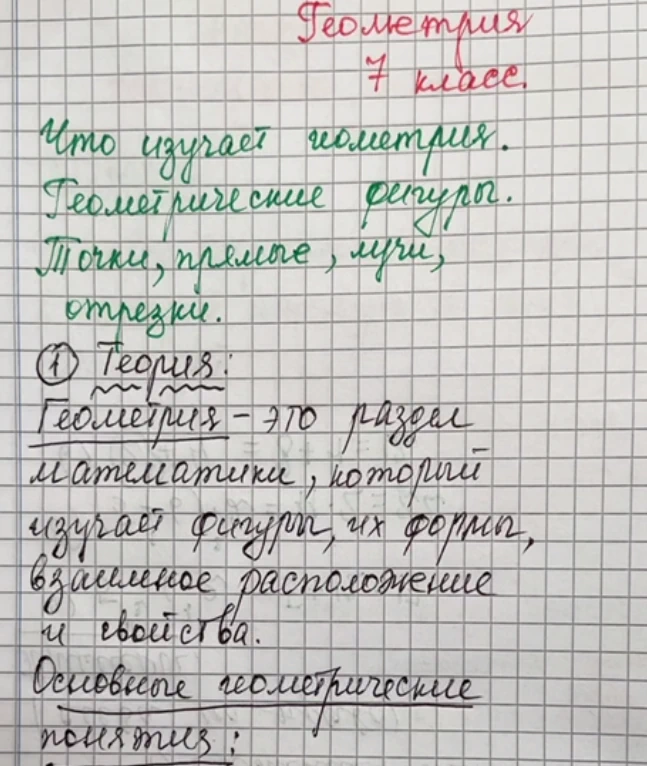 Геометрия
7 класс.
Что изучает геометрия.
Геометрические фигуры.
Точки, прямые, лучи,
отрезки.
① Теория:
Геометрия - это раздел
математики, который
изучает фигуры, их формы,
взаимное расположение
и свойства.
Основные геометрические
понятия: